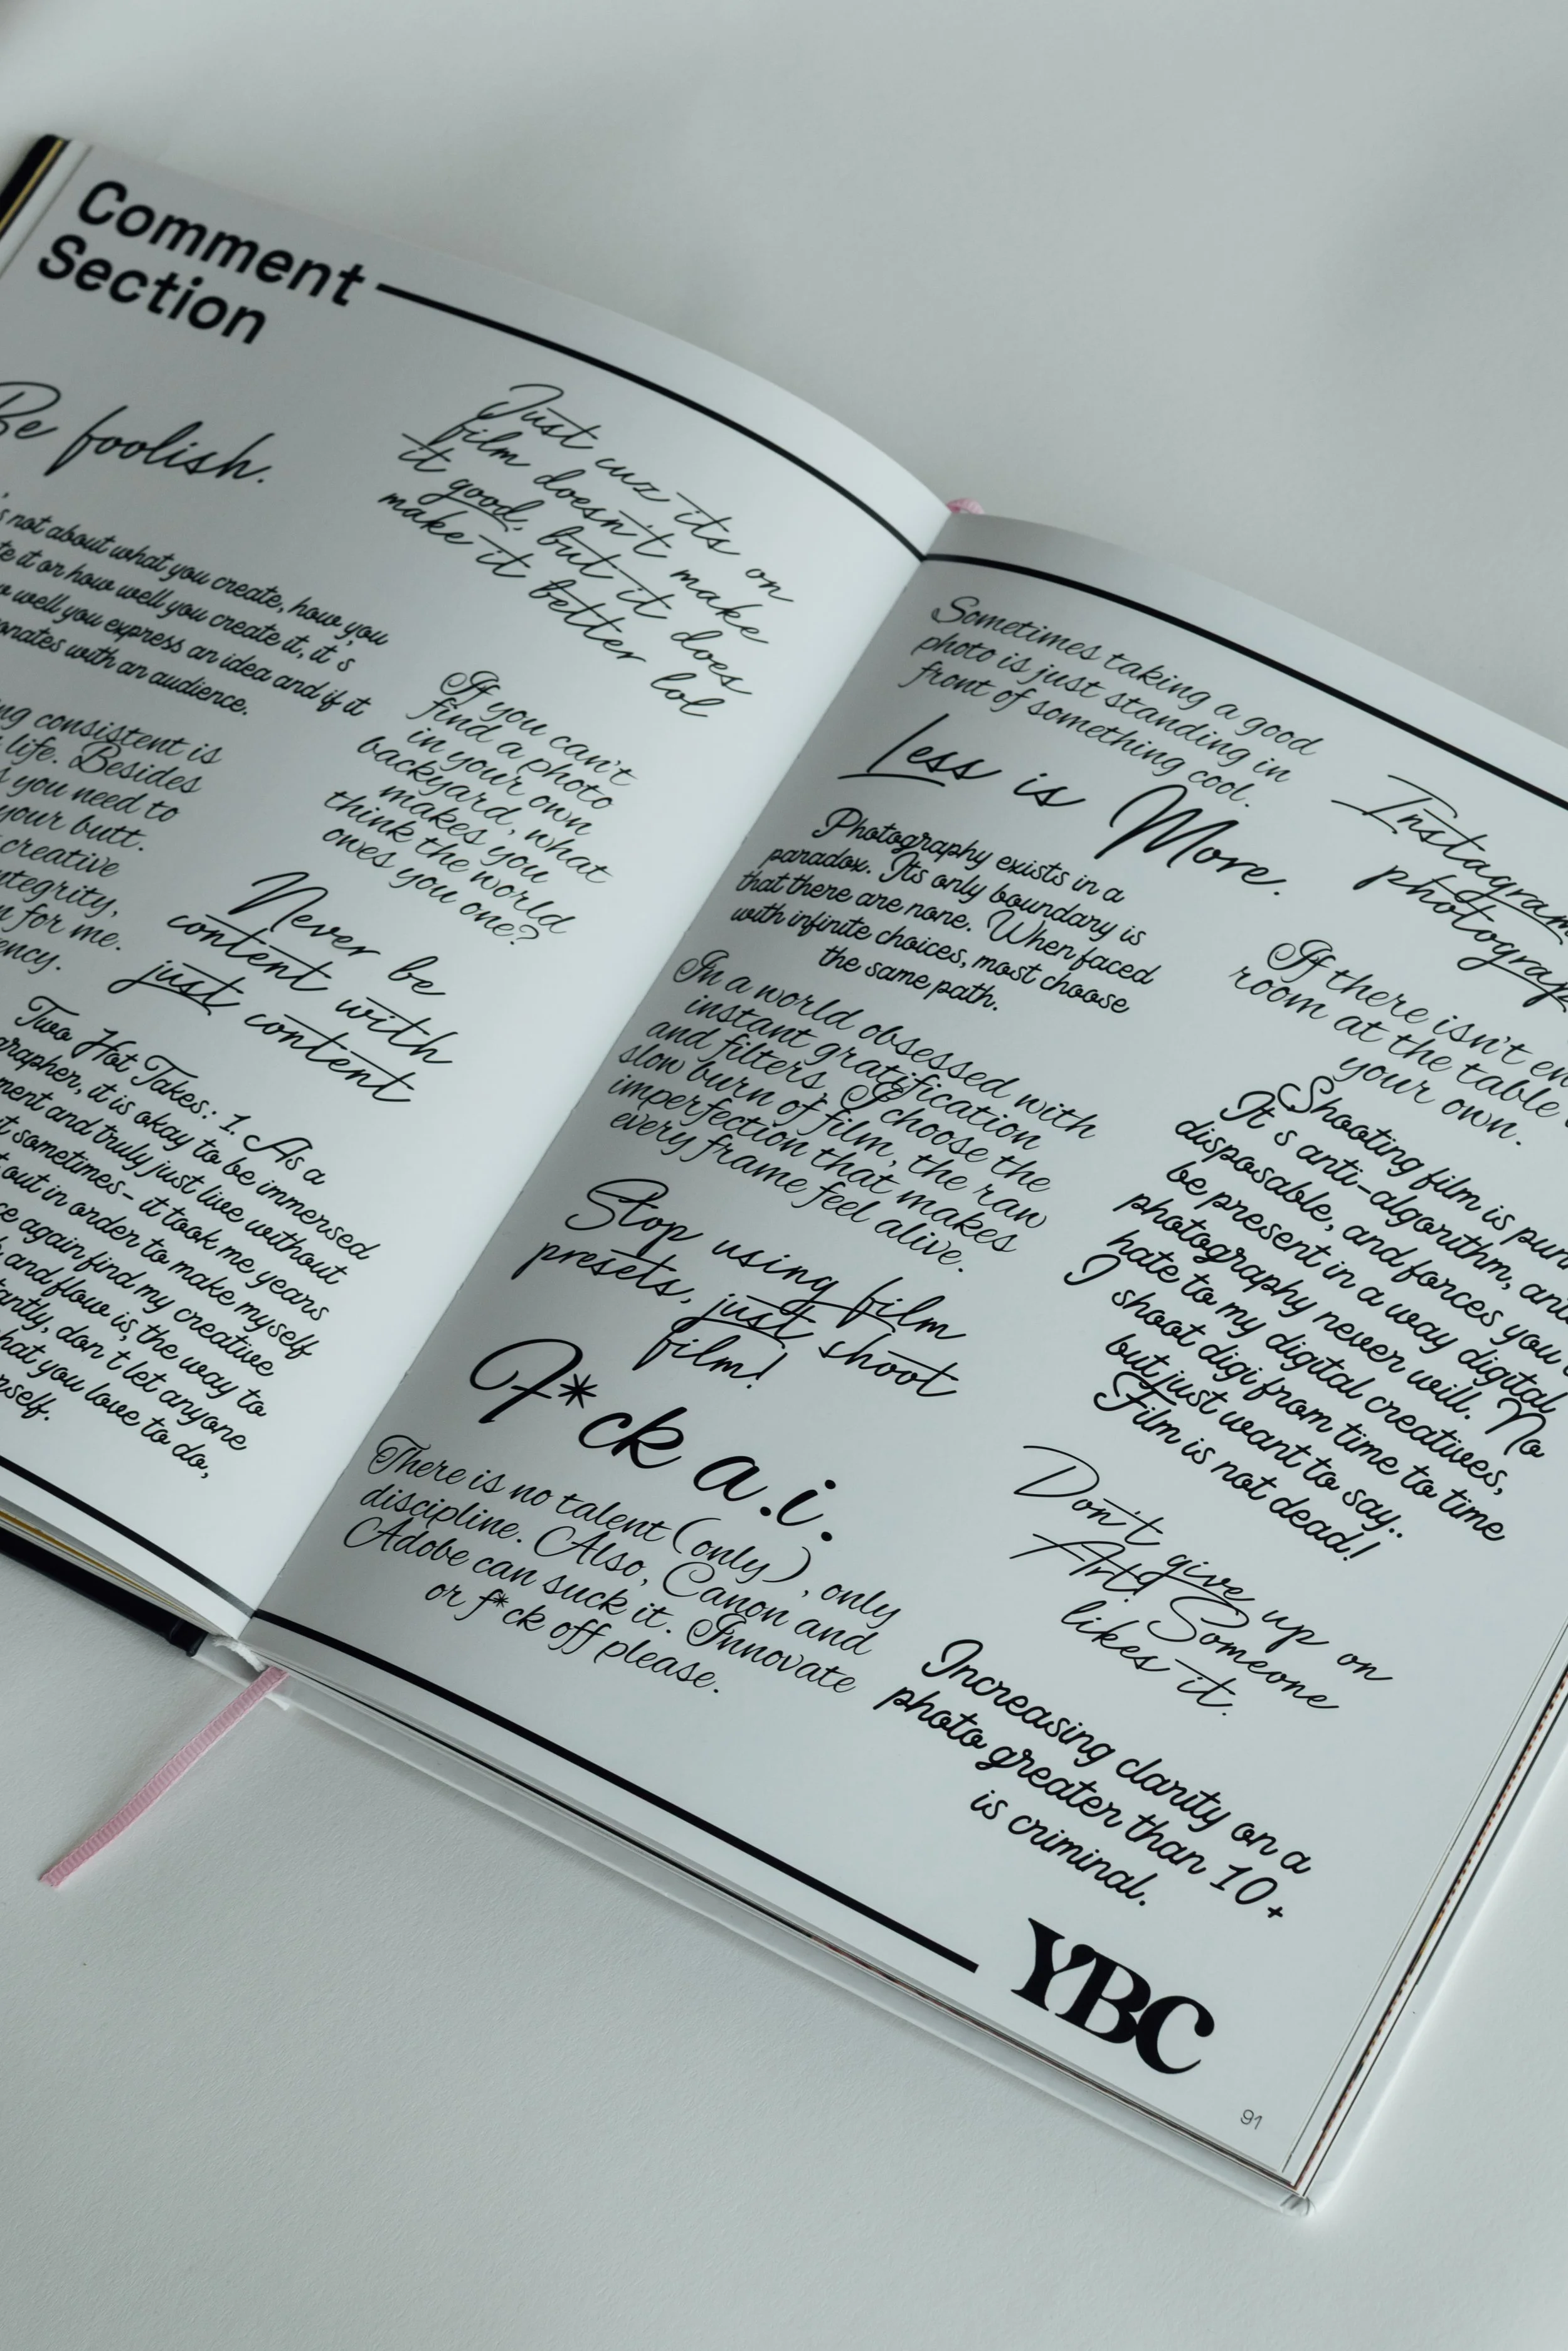 Comment
Section
Be foolish.
not about what you create, how you
it or how well you create it, it's
well you express an idea and if it
with an audience.
consistent is
life. Besides
you need to
your butt.
creative
integrity,
for me.
Two Hot Takes: 1. As a
it is okay to be immersed
and truly just live without
sometimes - it took me years
out in order to make myself
again find my creative
and flow is, the way to
don't let anyone
what you love to do,
Just cuz it's on
film doesn't make
it good, but it does
make it better lol
If you can't
find a photo
in your own
backyard, what
makes you
think the world
owes you one?
Never be
content with
just content
Sometimes taking a good
photo is just standing in
front of something cool.
Less is More.
Photography exists in a
paradox. Its only boundary is
that there are none. When faced
with infinite choices, most choose
the same path.
In a world obsessed with
instant gratification
and filters, I choose the
slow burn of film, the raw
imperfection that makes
every frame feel alive.
Stop using film
presets, just shoot
film!
F*ck a.i.
There is no talent (only), only
discipline. Also, Canon and
Adobe can suck it. Innovate
or f*ck off please.
Instagram
If there isn't
room at the table
your own.
Shooting film is
It's anti-algorithm,
disposable, and forces you
be present in a way digital
photography never will. No
hate to my digital creatives,
I shoot digi from time to time
but just want to say..
Film is not dead!
Don't give up on
Art! Someone
likes it.
Increasing clarity on a
photo greater than 10+
is criminal.
YBC
91